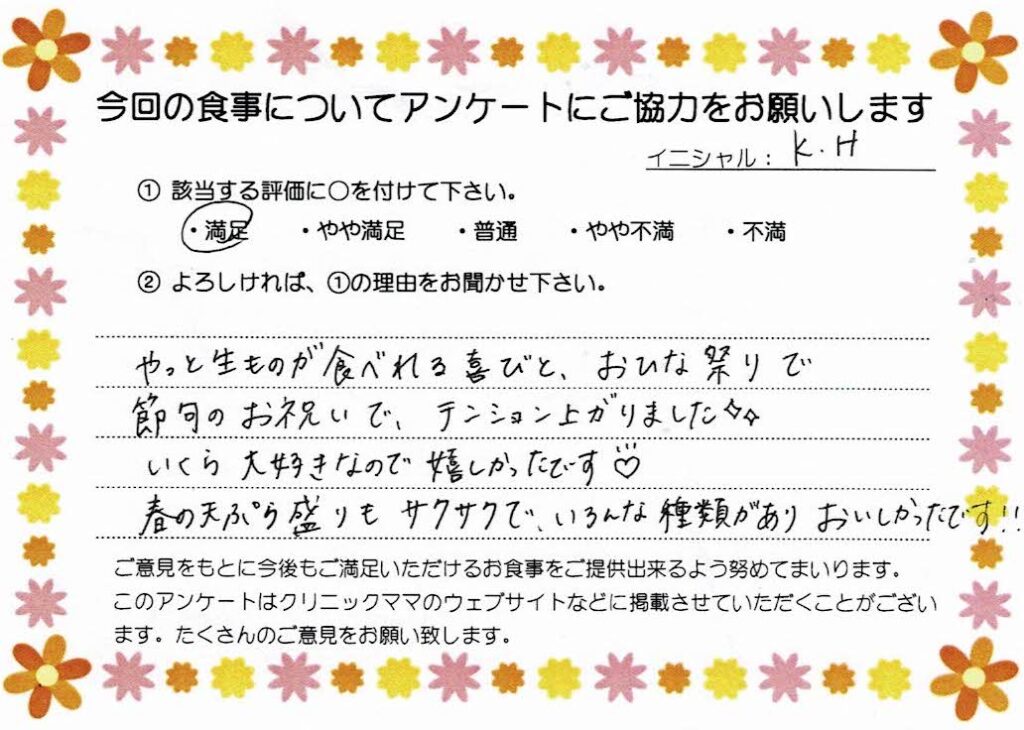 今回の食事についてアンケートにご協力をお願いします
イニシャル： K.H
① 該当する評価に○を付けて下さい。
・満足 ・やや満足 ・普通 ・やや不満 ・不満
② よろしければ、①の理由をお聞かせ下さい。
やっと生ものが食べれる喜びと、おひな祭りで
節句のお祝いで、テンション上がりました✧✧
いくら大好きなので嬉しかったです♡
春の天ぷら盛りもサクサクで、いろんな種類がありおいしかったです!!
ご意見をもとに今後もご満足いただけるお食事をご提供出来るよう努めてまいります。
このアンケートはクリニックママのウェブサイトなどに掲載させていただくことがござい
ます。たくさんのご意見をお願い致します。